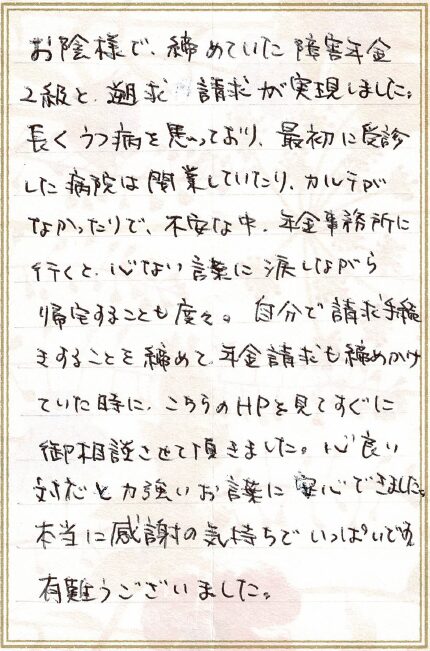 お陰様で、締めていた障害年金
2級と、遡求 請求が実現しました。
長くうつ病を患っており、最初に受診
した病院は閉業していたり、カルテが
なかったりで、不安な中、年金事務所に
行くと、心ない言葉に涙しながら
帰宅することも度々。自分で請求手続
きすることを締めて、年金請求も締めかけ
ていた時に、こちらのHPを見てすぐに
御相談させて頂きました。心良い
対応と力強いお言葉に安心できました。
本当に感謝の気持ちでいっぱいです。
有難うございました。